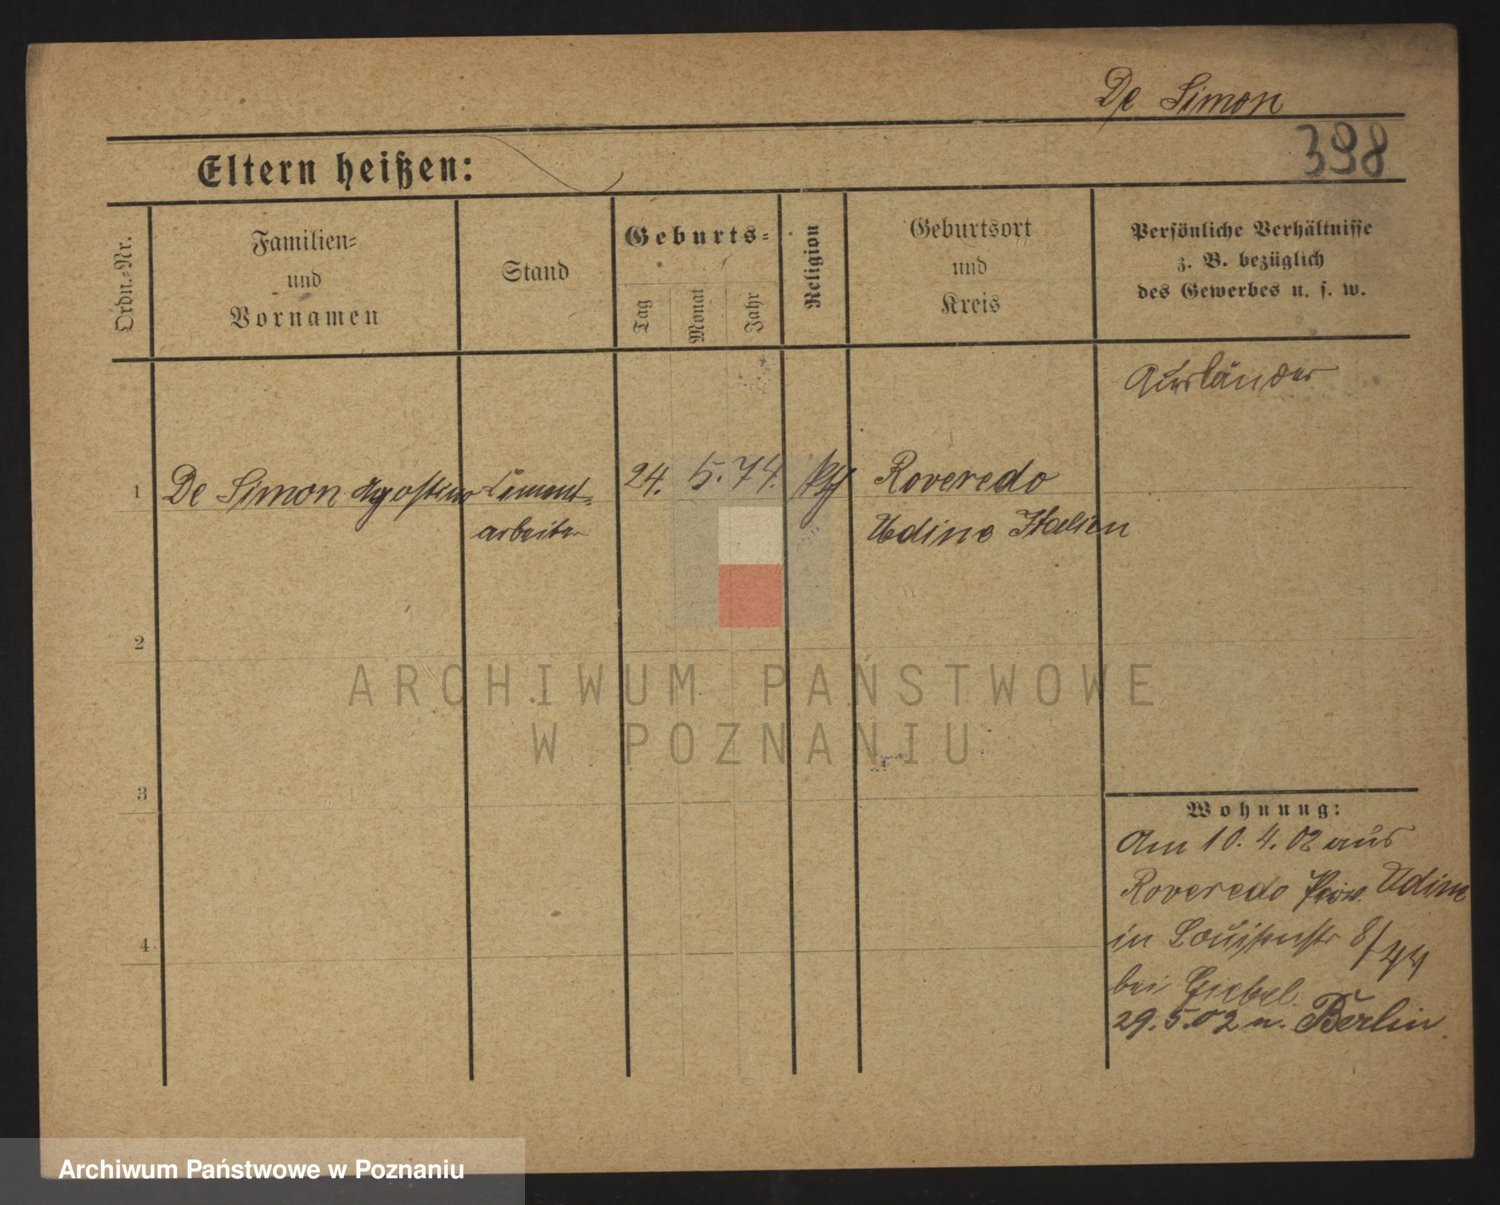 De Simon
398
Eltern heißen:
Ordn.=Nr.
Familien=
und
Vornamen
Stand
Geburts=
Tag
Monat
Jahr
Religion
Geburtsort
und
Kreis
Persönliche Verhältnisse
z. B. bezüglich
des Gewerbes u. s. w.
Ausländer
1 De Simon Agostino Cement= 24. 5. 74. kth Roveredo
arbeiter Udine Italien
2
3
4
Wohnung:
Am 10. 4. 02 aus
Roveredo Prov. Udine
in Louisenstr 8/44
bei Giebel.
29. 5. 02 n. Berlin.
ARCHIWUM PAŃSTWOWE
W POZNANIU
Archiwum Państwowe w Poznaniu